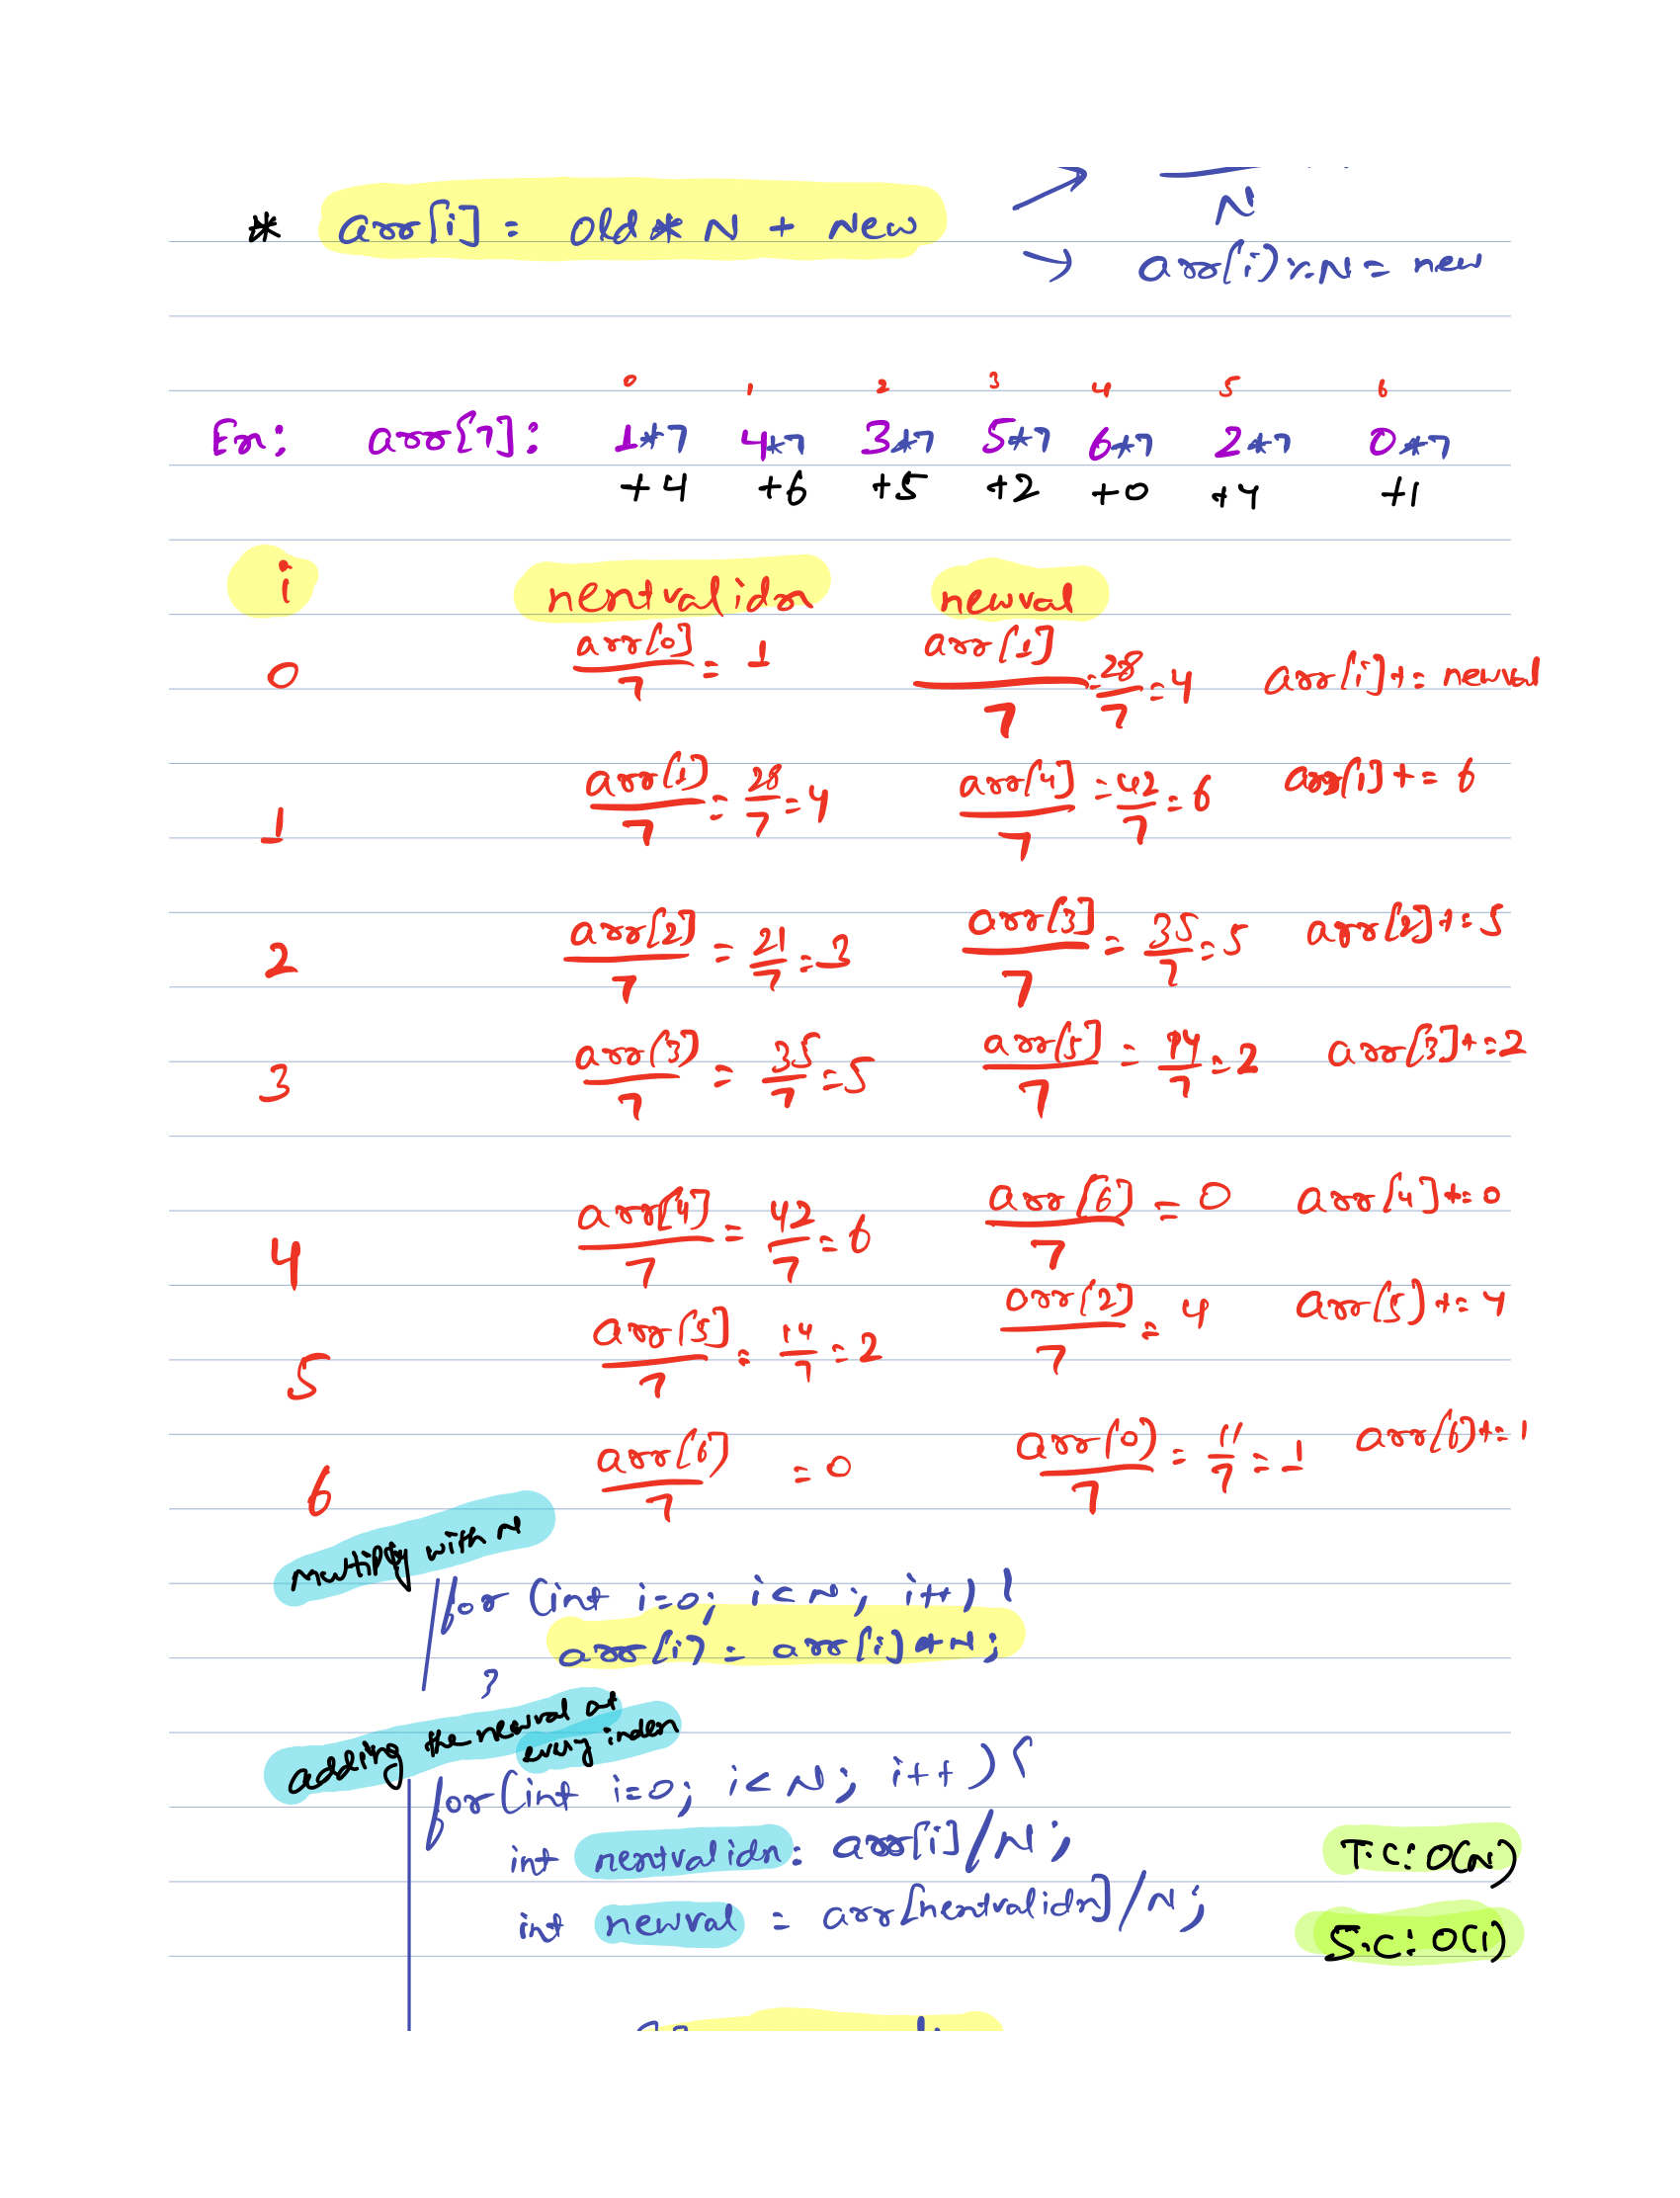 N
* arr[i] = old * N + New
→ arr[i] % N = new
0 1 2 3 4 5 6
Ex: arr[7]: 1*7 4*7 3*7 5*7 6*7 2*7 0*7
+4 +6 +5 +2 +0 +4 +1
i nextvalidx newval
0 arr[0]/7 = 1 arr[1]/7 = 28/7 = 4 arr[i] += newval
1 arr[1]/7 = 28/7 = 4 arr[4]/7 = 42/7 = 6 arr[1] += 6
2 arr[2]/7 = 21/7 = 3 arr[3]/7 = 35/7 = 5 arr[2] += 5
3 arr[3]/7 = 35/7 = 5 arr[5]/7 = 14/7 = 2 arr[3] += 2
4 arr[4]/7 = 42/7 = 6 arr[6]/7 = 0 arr[4] += 0
5 arr[5]/7 = 14/7 = 2 arr[2]/7 = 4 arr[5] += 4
6 arr[6]/7 = 0 arr[0]/7 = 11/7 = 1 arr[6] += 1
Multiply with N
for (int i=0; i<N; i++) {
arr[i] = arr[i] * N;
}
adding the newval at
every index
for (int i=0; i<N; i++) {
int nextvalidx = arr[i]/N;
T.C: O(N)
int newval = arr[nextvalidx]/N;
S.C: O(1)